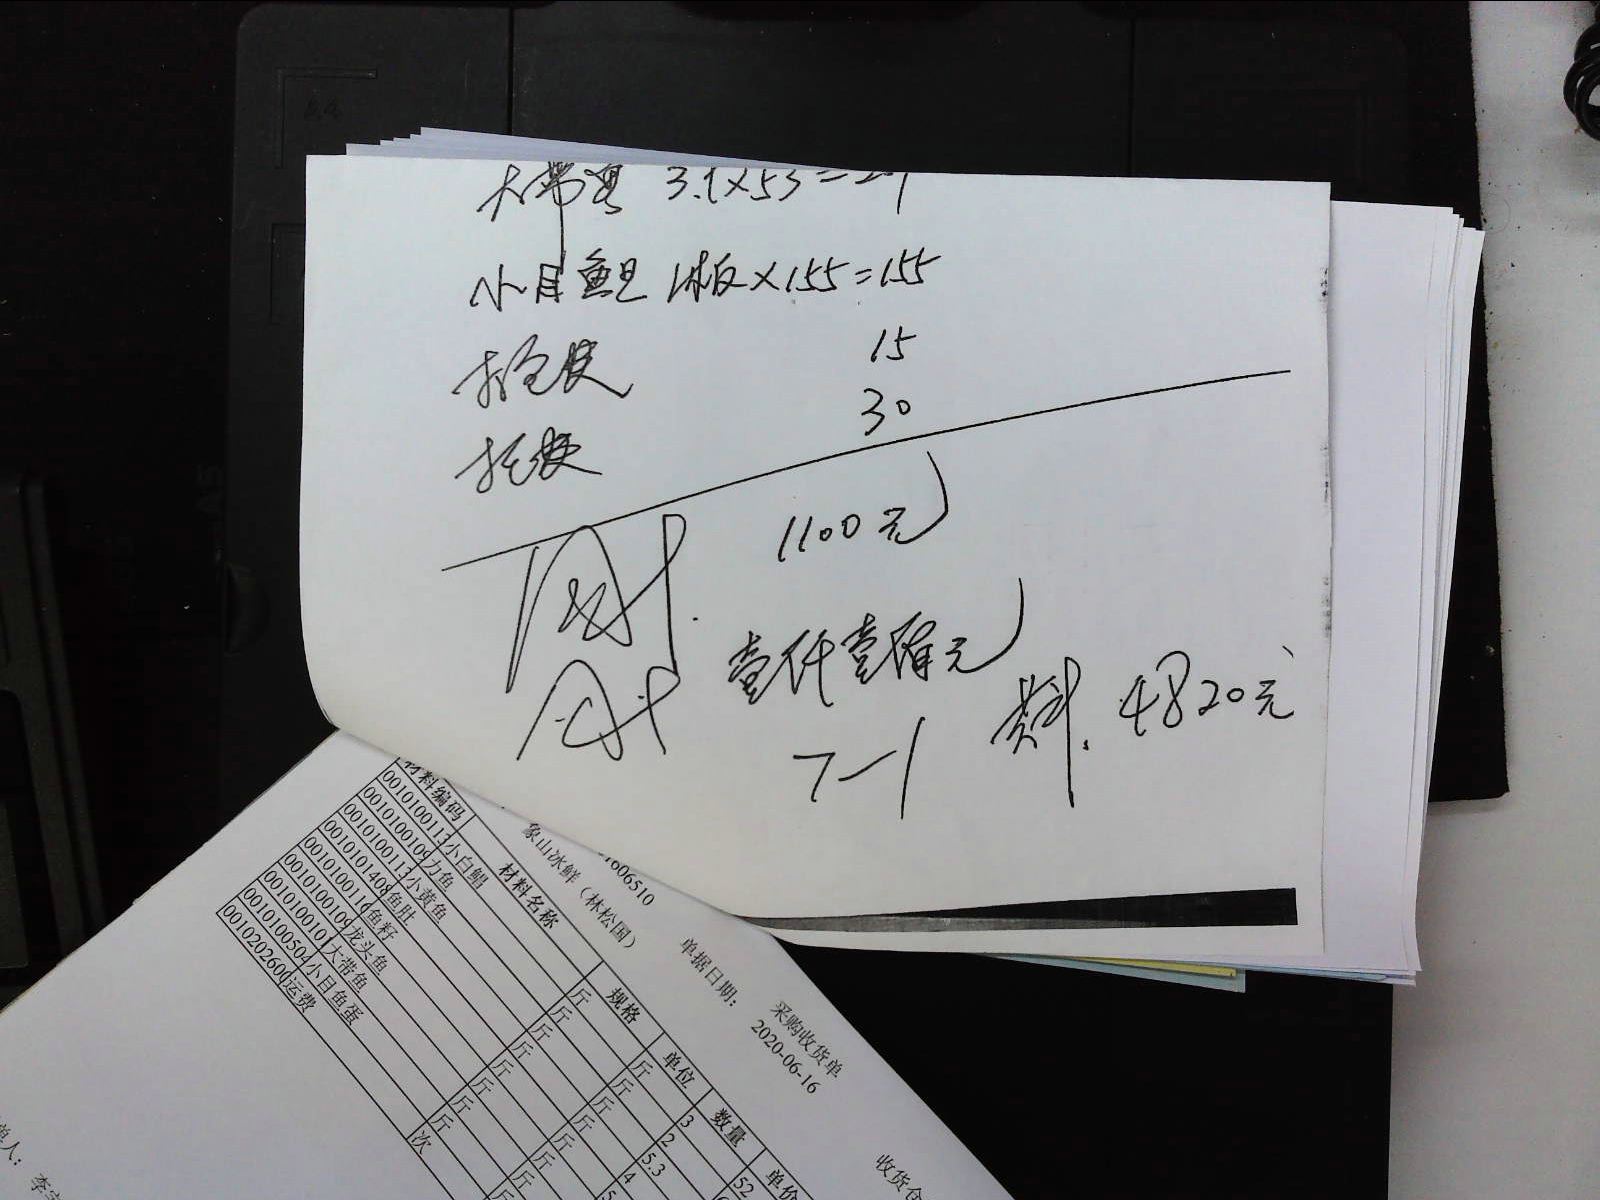 大带鱼 3.1×53=
小目鱼旦 1板×155=155
15
30
1100元
壹仟壹佰元
7-1
料. 4820元
采购收货单
606510
单据日期: 2020-06-16
收货仓
象山冰鲜（林松国）
材料编码 材料名称 规格 单位 数量 单价
001010011 小白鲳 斤 斤 3 52
00101001 力鱼 斤 斤 2
001010011 小黄鱼 斤 斤 5.3
001010140 鱼肚 斤 斤 4
001010011 鱼籽 斤 斤 5
00101001 龙头鱼 斤 斤
001010010 大带鱼 斤 斤
001010050 小目鱼蛋
001020260 运费 次
单人:
李